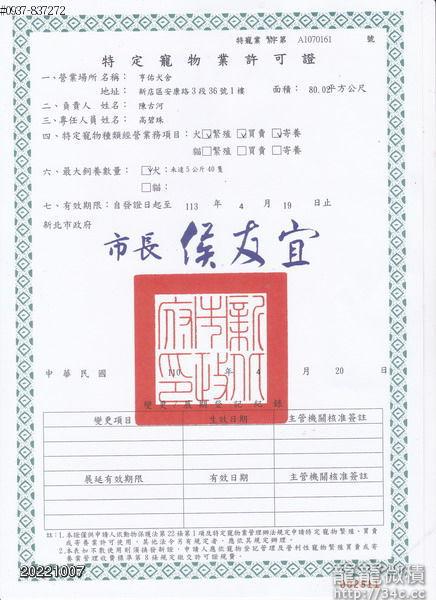 #0937-837272
特寵業 繁字第 A1070161 號
特定寵物業許可證
一、營業場所名稱: 亨佑犬舍
地址: 新店區安康路3段36號1樓 面積: 80.02平方公尺
二、負責人 姓名: 陳古河
三、專任人員姓名: 高碧珠
四、特定寵物種類經營業務項目:犬☑繁殖☑買賣☑寄養
貓□繁殖□買賣□寄養
六、最大飼養數量: ☑犬:未達5公斤40隻
□貓:
七、有效期限:自發證日起至 113 年 4 月 19 日止
新北市政府
市長 侯友宜
新北市政府印
中華民國 110 年 4 月 20 日
變更/展期登記紀錄
變更項目 生效日期 主管機關核准簽註
展延有效期限 有效日期 主管機關核准簽註
註:1.本證僅與申請人依動物保護法第22條第1項及特定寵物業管理辦法規定申請特定寵物繁殖、買賣
或寄養業許可使用,其他法令另有規定者,應依其規定辦理。
2.本表如不敷使用則須換發新證,申請人應依寵物登記管理及營利性寵物繁殖買賣或寄
養業管理收費標準第8條規定繳交許可證規費。
20221007
002511
龍龍微積
http://34c.cc